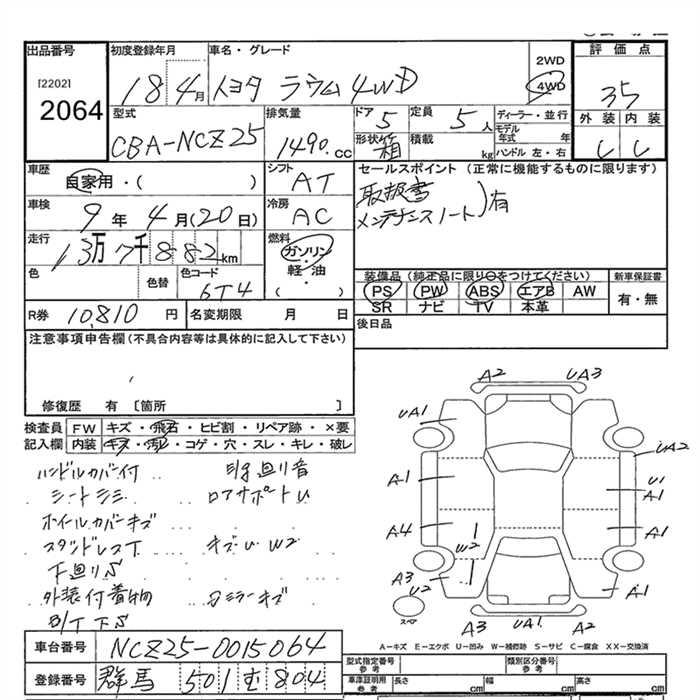 出品番号
[2202]
2064
初度登録年月
18 4月
車名・グレード
トヨタ ラウム 4WD
2WD
4WD
評価点
35
型式
CBA-NCZ25
排気量
1490.cc
ドア 5
形状 箱
定員 5人
積載 kg
ディーラー・並行
モデル年式 年
ハンドル 左・右
外装 内装
C C
車歴
自家用・( )
シフト
AT
セールスポイント (正常に機能するものに限ります)
取扱書
メンテナンスノート)有
車検
9年 4月(20日)
冷房
AC
走行
13万7千882km
燃料
ガソリン・
軽・油
( )
色
色替
色コード
6T4
装備品 (純正品に限り○をつけてください)
PS PW ABS エアB AW
SR ナビ TV 本革
新車保証書
有・無
R券 10,810 円
名変期限 月 日
後日品
注意事項申告欄 (不具合内容等は具体的に記入して下さい)
修復歴 有 〔箇所 〕
検査員記入欄
FW キズ・飛石・ヒビ割・リペア跡・×要
内装 キズ・汚れ・コゲ・穴・スレ・キレ・破レ
ハンドルカバー付
シートシミ
ロアサポートU
ホイールカバーキズ
キズU W2
下廻りS
外装付着物
ミラーキズ
A2 UA3
UA1
UA2
A1
U1
A1
A4
A1
W2
A3
U2
A1
スペア
A3 UA1 A2
A-キズ E-エクボ U-凹み W-補修跡 S-サビ C-腐食 XX-交換済
車台番号 NCZ25-0015064
登録番号 群馬 501 む 804
型式指定番号
参考
類別区分番号
参考
車庫証明用
参考
長さ cm
幅 cm
高さ cm